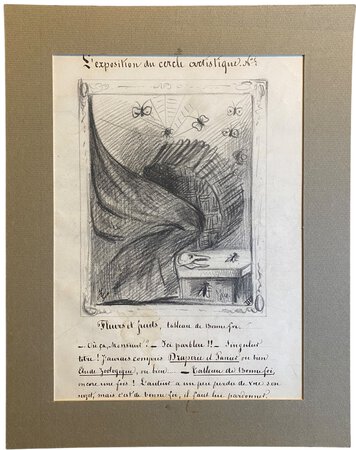 L'exposition du cercle artistique. N°
Fleurs et fruits, tableau de Bonnefoi.
— Où ça, Monsieur? — Ici parbleu!! — Singulier
titre! J'aurais compris Draperie et Panier ou bien
Étude Zoologique, ou bien ... — Tableau de Bonnefoi,
encore une fois! L'auteur a un peu perdu de vue son
sujet, mais c'est de bonne foi, il faut lui pardonner.